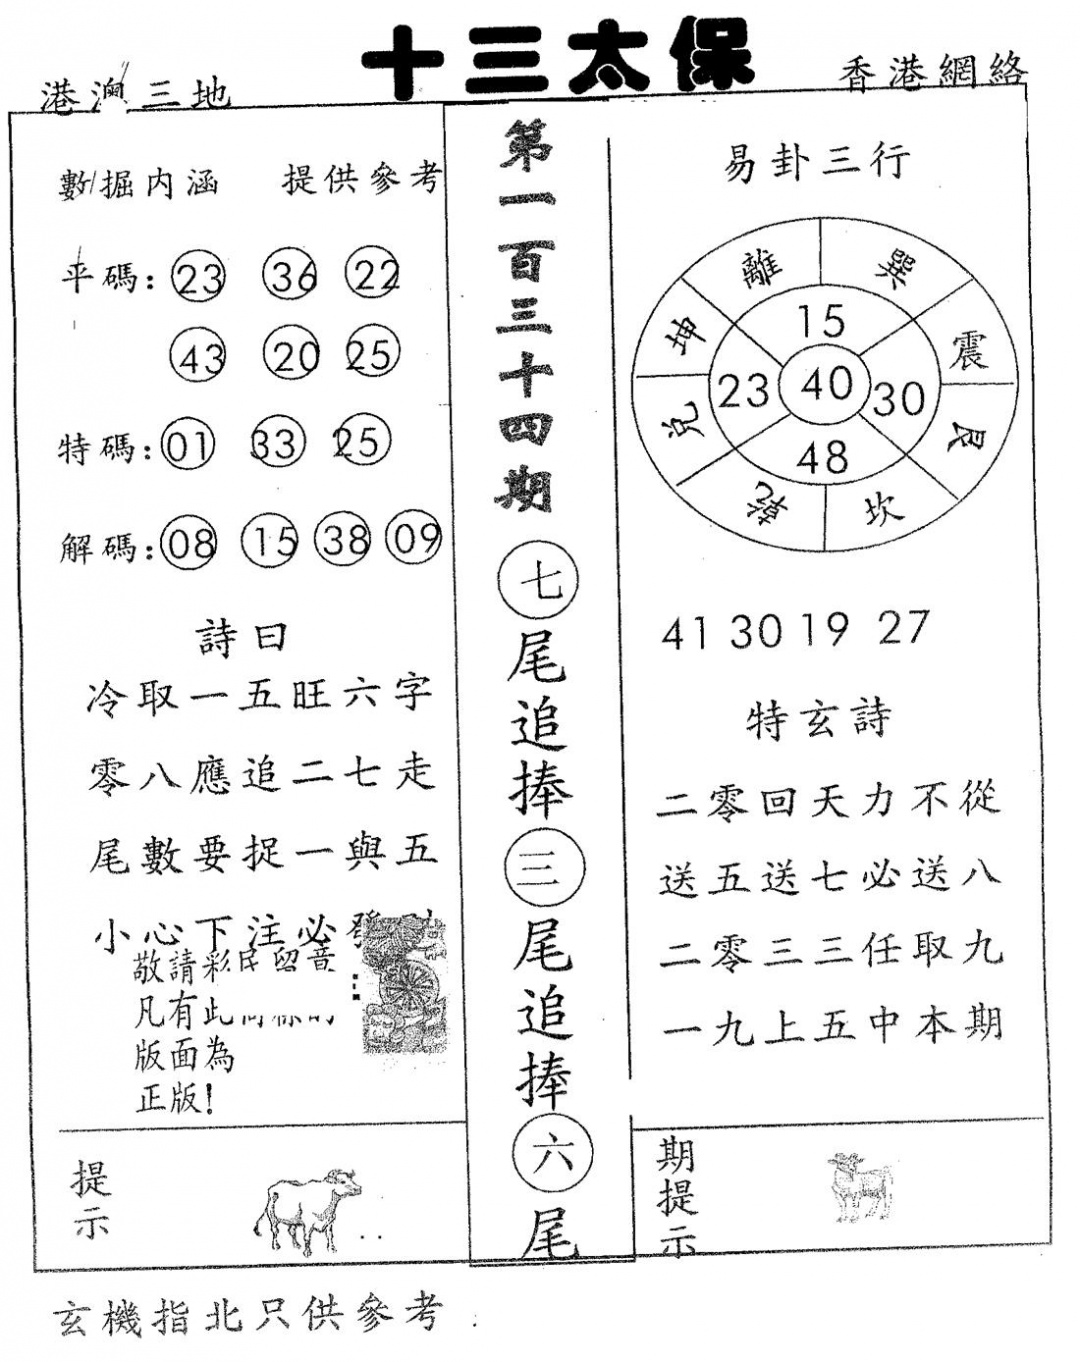 十三太保
港澳三地
香港網絡
數掘内涵 提供參考
平碼: 23 36 22
43 20 25
特碼: 01 33 25
解碼: 08 15 38 09
詩曰
冷取一五旺六字
零八應追二七走
尾數要捉一與五
小心下注必發
敬請彩民留意
凡有此
版面為
正版!
提示
第一百三十四期
七尾追捧三尾追捧六尾
易卦三行
離 巽
坤 震
兌 艮
乾 坎
15
23 40 30
48
41 30 19 27
特玄詩
二零回天力不從
送五送七必送八
二零三三任取九
一九上五中本期
期提示
玄機指北只供參考